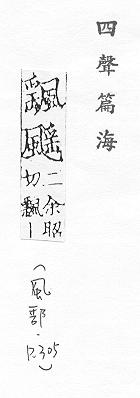 四聲篇海
颻
二余昭
切飄｜
（風部．p.305）